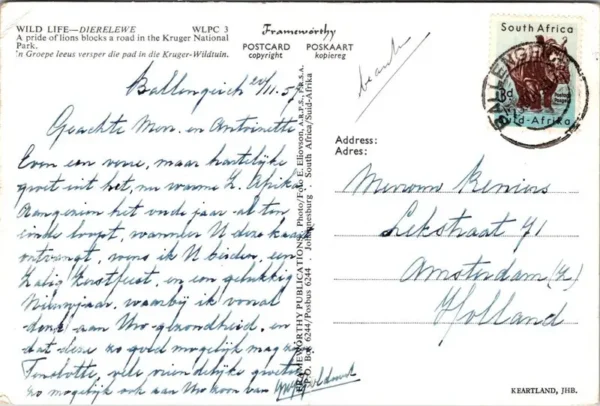 WILD LIFE—DIERELEWE WLPC 3
A pride of lions blocks a road in the Kruger National
Park.
'n Groepe leeus versper die pad in die Kruger-Wildtuin.
Frameworthy
POSTCARD POSKAART
copyright kopiereg
South Africa
d
id-Afrika
BALLENG
Ballengeich 11.57
Geachte Mevr. en Antoinette
Even een verre, maar hartelijke
groet uit het, nu warme Z. Afrika
Aangezien het oude jaar al ten
einde loopt, wanneer U deze kaart
ontvangt, wens ik U beiden, een
Zalig Kerstfeest, en een gelukkig
Nieuwjaar, waarbij ik vooral
denk aan Uw gezondheid, en
dat deze zo goed mogelijk mag
Tenslotte, vele vriendelijke groeten
zo mogelijk ook aan Uw zoon van
FRAMEWORTHY PUBLICATIONS. Photo/Foto E. Eliovson, A.R.P.S., F.R.S.A.
P.O. Box 6244/Posbus 6244 . Johannesburg . South Africa/Suid-Afrika
Address:
Adres:
Mevrouw Reniers
Lekstraat 71
Amsterdam (Z)
Holland
KEARTLAND, JHB.